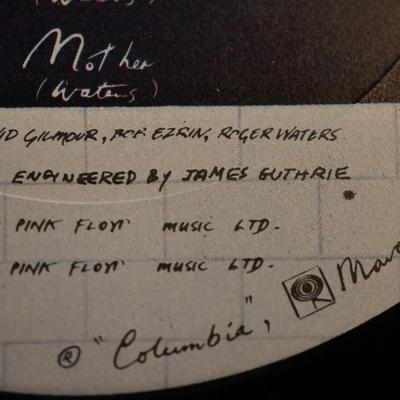 (Waters)
Mother
(Waters)
ID GILMOUR, BOB EZRIN, ROGER WATERS
ENGINEERED BY JAMES GUTHRIE
PINK FLOYD MUSIC LTD.
PINK FLOYD MUSIC LTD.
® "Columbia",